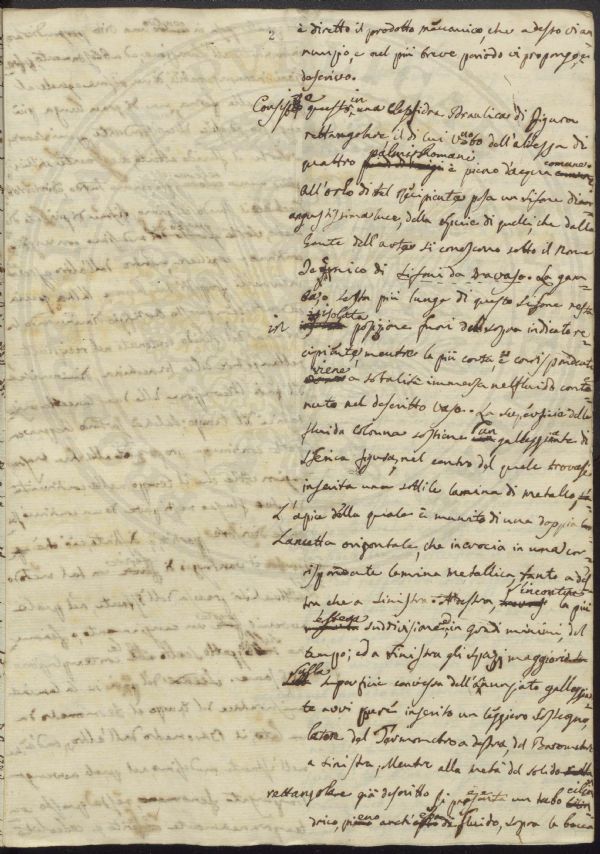 2
è diretto il prodotto meccanico che adesso vi an-
nunzio, e nel più breve periodo vi propongo, e
descrivo.
Consiste questo in una Clessidra Idraulica di figura
rettangolare il di cui vaso dell'altezza di
quattro palmi Romani è pieno d'acqua comune.
All'orlo di tal recipiente posa un Sifone di an-
gustissima luce, della specie di quelli, che dalla
Gente dell'arte si conoscono sotto il Nome
di Sifoni da travaso. La gam-
ba più lunga di questo Sifone resta
in isolata posizione fuori del sopra indicato re-
cipiente, mentre la più corta, e corrispondente
viene a stabilirsi immersa nel fluido conte-
nuto nel descritto vaso. La superficie della
fluida colonna sostiene un galleggiante di
sferica figura, nel centro del quale trovasi
inserita una sottile lamina di metallo,
L'apice della quale è munito di una doppia
Lancetta orizontale, che incrocia in una cor-
rispondente lamina metallica, tanto a des-
tra che a sinistra. A destra, s'incontra la più
estesa suddivisione, in gradi minimi del
tempo; ed a sinistra gli spazj maggiori.
Sulla superficie convessa dell'annunziato galleggian-
te avvi pure inserito un leggiero sostegno,
latore del Termometro a destra, del Barometro
a sinistra, Mentre alla metà del solido
rettangolare già descritto si presenta un tubo cilin-
drico, pieno di fluido, sopra la bocca